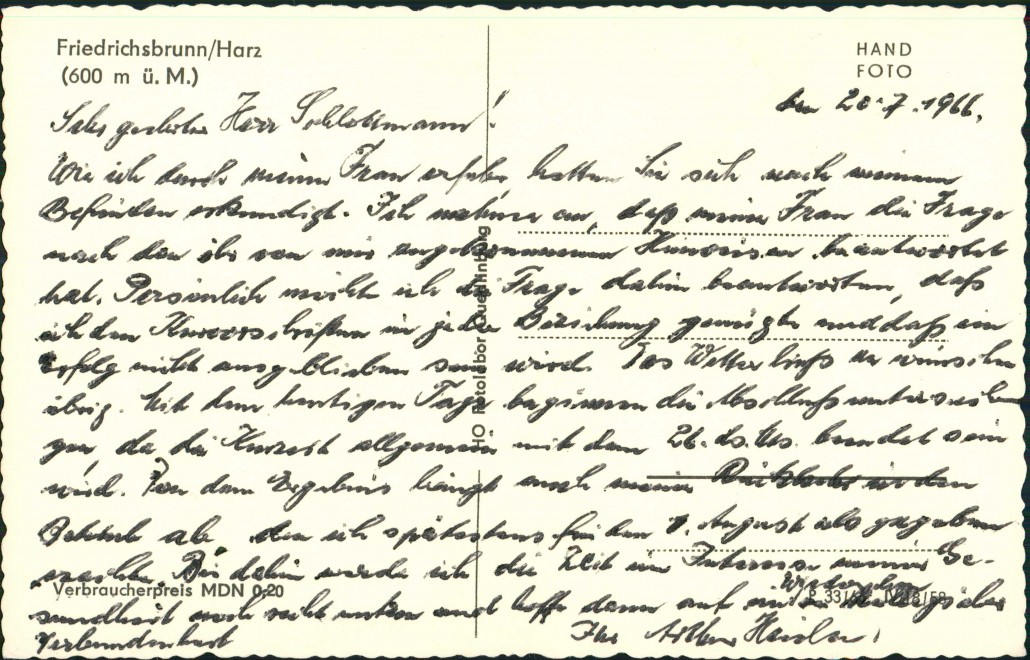 Friedrichsbrunn/Harz
(600 m ü. M.)
HAND
FOTO
den 20.7.1966.
Sehr geehrter Herr Schlotmann!
Wie ich durch meine Frau erfuhr, hatten Sie sich nach meinem
Befinden erkundigt. Ich nehme an, daß meine Frau die Frage
nach den ihr von mir angekommenen beantwortet
hat. Persönlich möchte ich die Frage dahin beantworten, daß
ich den Kurvorschriften in jeder Beziehung genügte und daß ein
Erfolg nicht ausgeblieben sein wird. Das Wetter ließ zu wünschen
übrig. Mit dem heutigen Tage beginnen die Abschlußuntersuchun
gen, da die Kurzeit allgemein mit dem 26. ds. Mts. beendet sein
wird. Von dem Ergebnis hängt auch meine in den
Betrieb ab, den ich spätestens für den 1. August als gegeben
erachte. Bis dahin werde ich die Zeit im Interesse meiner Ge-
sundheit noch nicht und hoffe dann auf ein
Verbundenheit
Ihr Arthur
HO Fotolabor Quedlinburg
Verbraucherpreis MDN 0,20